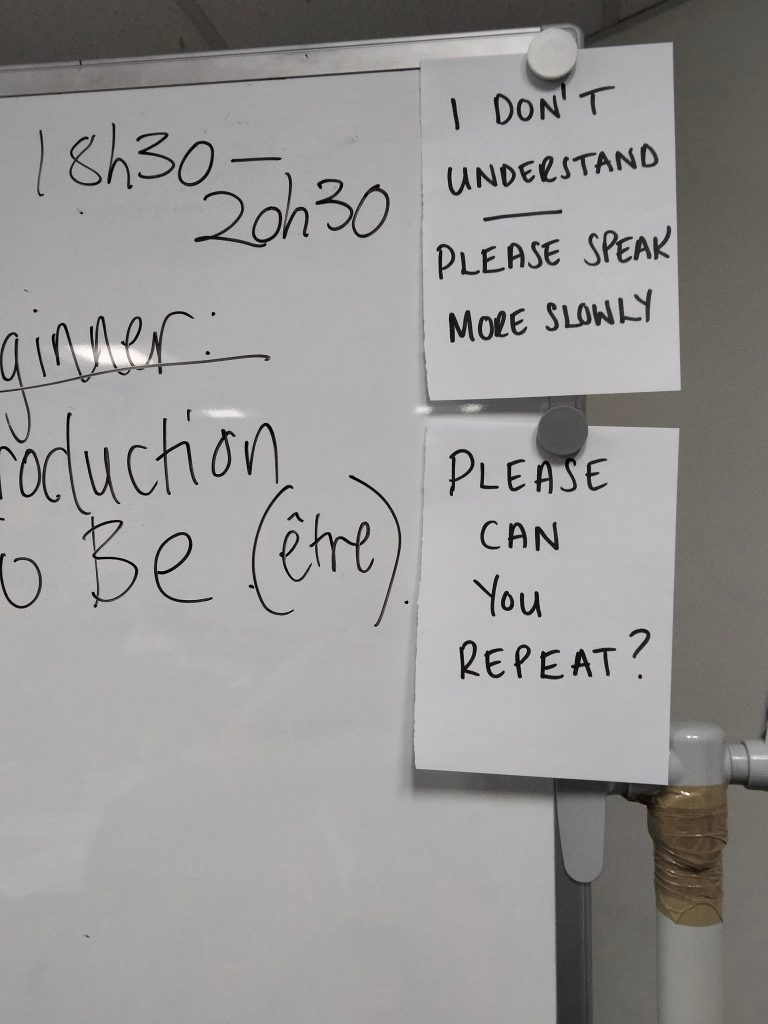 18h30 –
20h30
ginner:
roduction
o Be (être).
I DON'T
UNDERSTAND
—
PLEASE SPEAK
MORE SLOWLY
PLEASE
CAN
YOU
REPEAT?